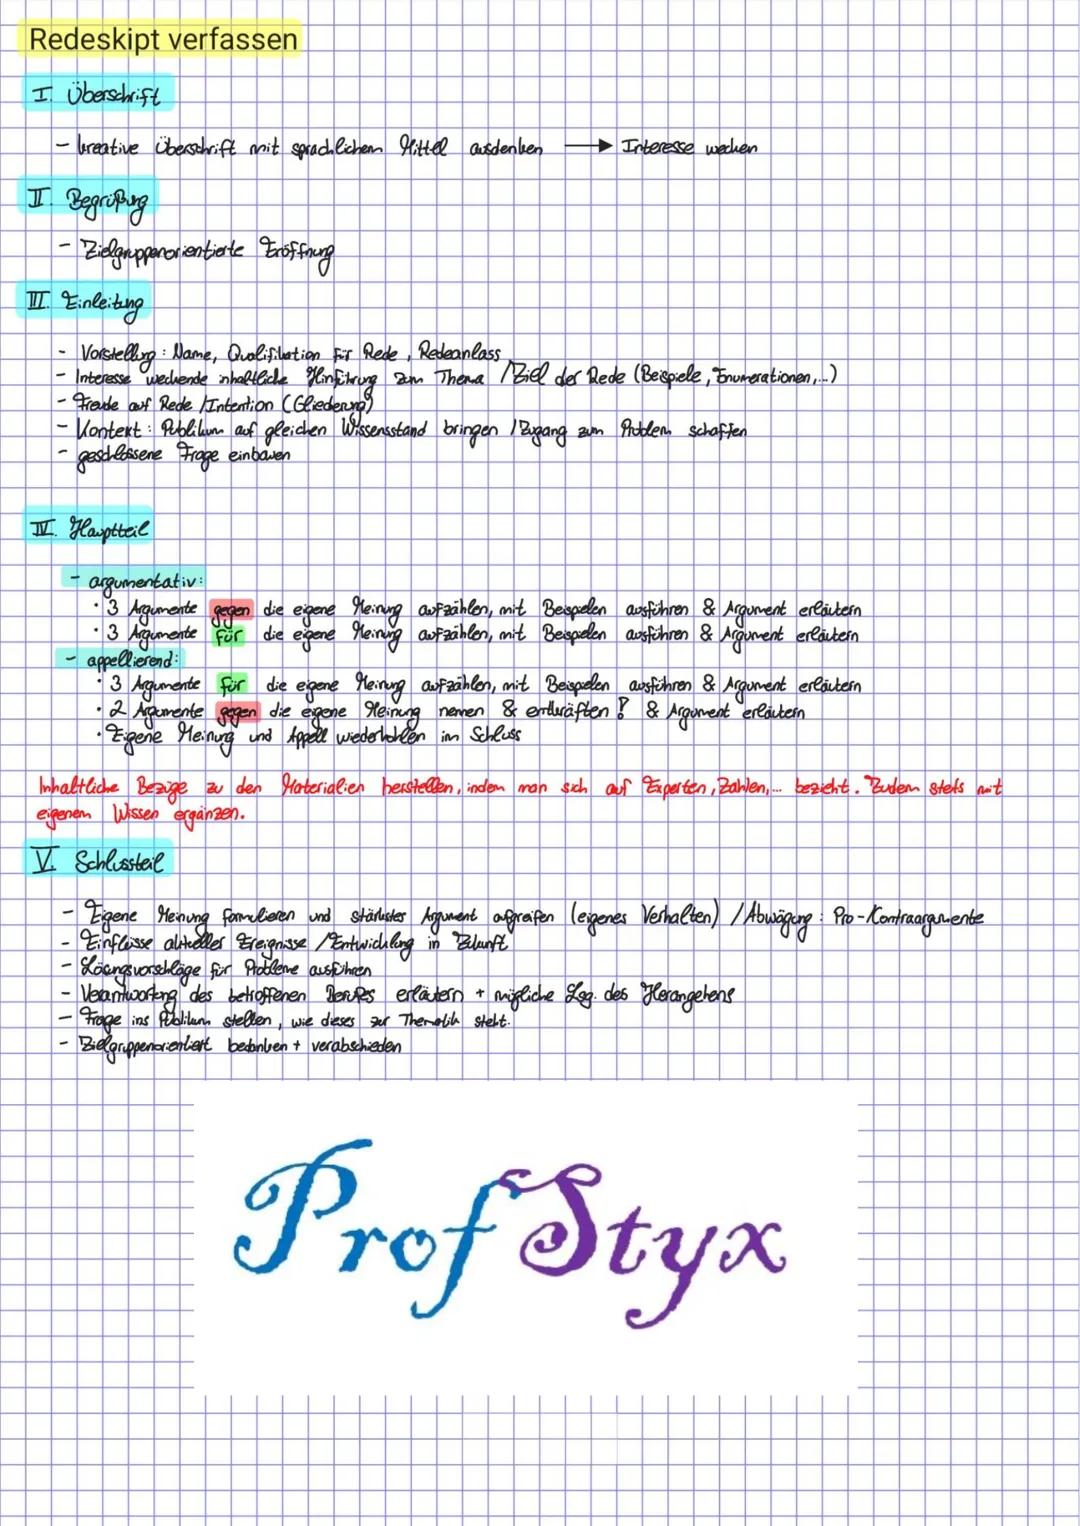 Redeskipt verfassen
I. Überschrift
- kreative Überschrift mit sprachlichem Mittel ausdenken → Interesse wecken
II. Begrüßung
- Zielgruppenorientierte Eröffnung
III. Einleitung
- Vorstellung: Name, Qualifikation für Rede, Redeanlass
- Interesse weckende inhaltliche Hinführung zum Thema / Ziel der Rede (Beispiele, Enumerationen,...)
- Freude auf Rede / Intention (Gliederung)
- Kontext: Publikum auf gleichen Wissensstand bringen / Zugang zum Problem schaffen
- geschlossene Frage einbauen
IV. Hauptteil
- argumentativ:
· 3 Argumente gegen die eigene Meinung aufzählen, mit Beispielen ausführen & Argument erläutern
· 3 Argumente für die eigene Meinung aufzählen, mit Beispielen ausführen & Argument erläutern
- appellierend:
· 3 Argumente für die eigene Meinung aufzählen, mit Beispielen ausführen & Argument erläutern
· 2 Argumente gegen die eigene Meinung nennen & entkräften! & Argument erläutern
· Eigene Meinung und Appell wiederhohlen im Schluss
Inhaltliche Bezüge zu den Materialien herstellen, indem man sich auf Experten, Zahlen,... bezieht. Zudem stets mit
eigenem Wissen ergänzen.
V. Schlussteil
- Eigene Meinung formulieren und stärkstes Argument aufgreifen (eigenes Verhalten) / Abwägung: Pro-/Kontraargumente
- Einflüsse aktueller Ereignisse / Entwicklung in Zukunft
- Lösungsvorschläge für Probleme ausführen
- Verantwortung des betroffenen Berufes erläutern + mögliche Lsg. des Herangehens
- Frage ins Publikum stellen, wie dieses zur Thematik steht.
- Zielgruppenorientiert bedanken + verabschieden
Prof Styx